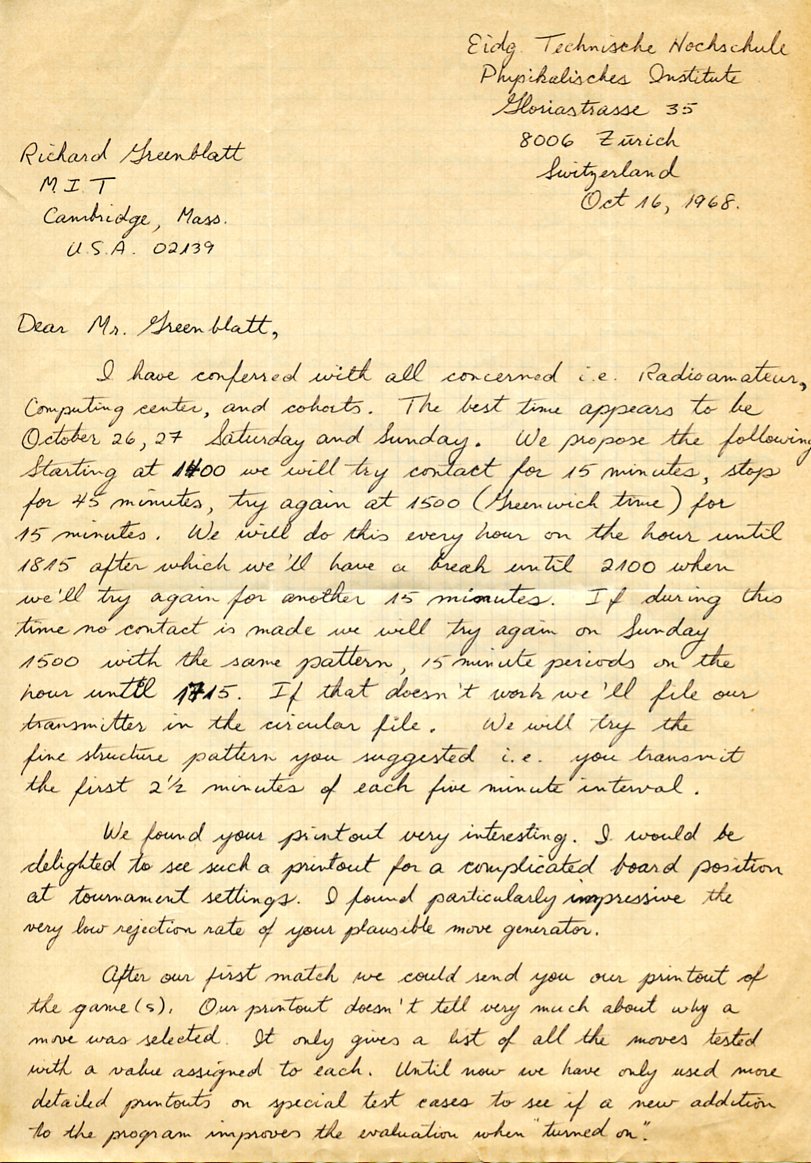 Eidg. Technische Hochschule
Physikalisches Institute
Gloriastrasse 35
8006 Zürich
Switzerland
Oct 16, 1968.
Richard Greenblatt
M.I.T
Cambridge, Mass.
U.S.A. 02139
Dear Mr. Greenblatt,
I have conferred with all concerned i.e. Radioamateur,
Computing center, and cohorts. The best time appears to be
October 26, 27 Saturday and Sunday. We propose the following
Starting at 1400 we will try contact for 15 minutes, stop
for 45 minutes, try again at 1500 (Greenwich time) for
15 minutes. We will do this every hour on the hour until
1815 after which we'll have a break until 2100 when
we'll try again for another 15 minutes. If during this
time no contact is made we will try again on Sunday
1500 with the same pattern, 15 minute periods on the
hour until 1715. If that doesn't work we'll file our
transmitter in the circular file. We will try the
fine structure pattern you suggested i.e. you transmit
the first 2½ minutes of each five minute interval.
We found your printout very interesting. I would be
delighted to see such a printout for a complicated board position
at tournament settings. I found particularly impressive the
very low rejection rate of your plausible move generator.
After our first match we could send you our printout of
the game(s). Our printout doesn't tell very much about why a
move was selected. It only gives a list of all the moves tested
with a value assigned to each. Until now we have only used more
detailed printouts on special test cases to see if a new addition
to the program improves the evaluation when "turned on".